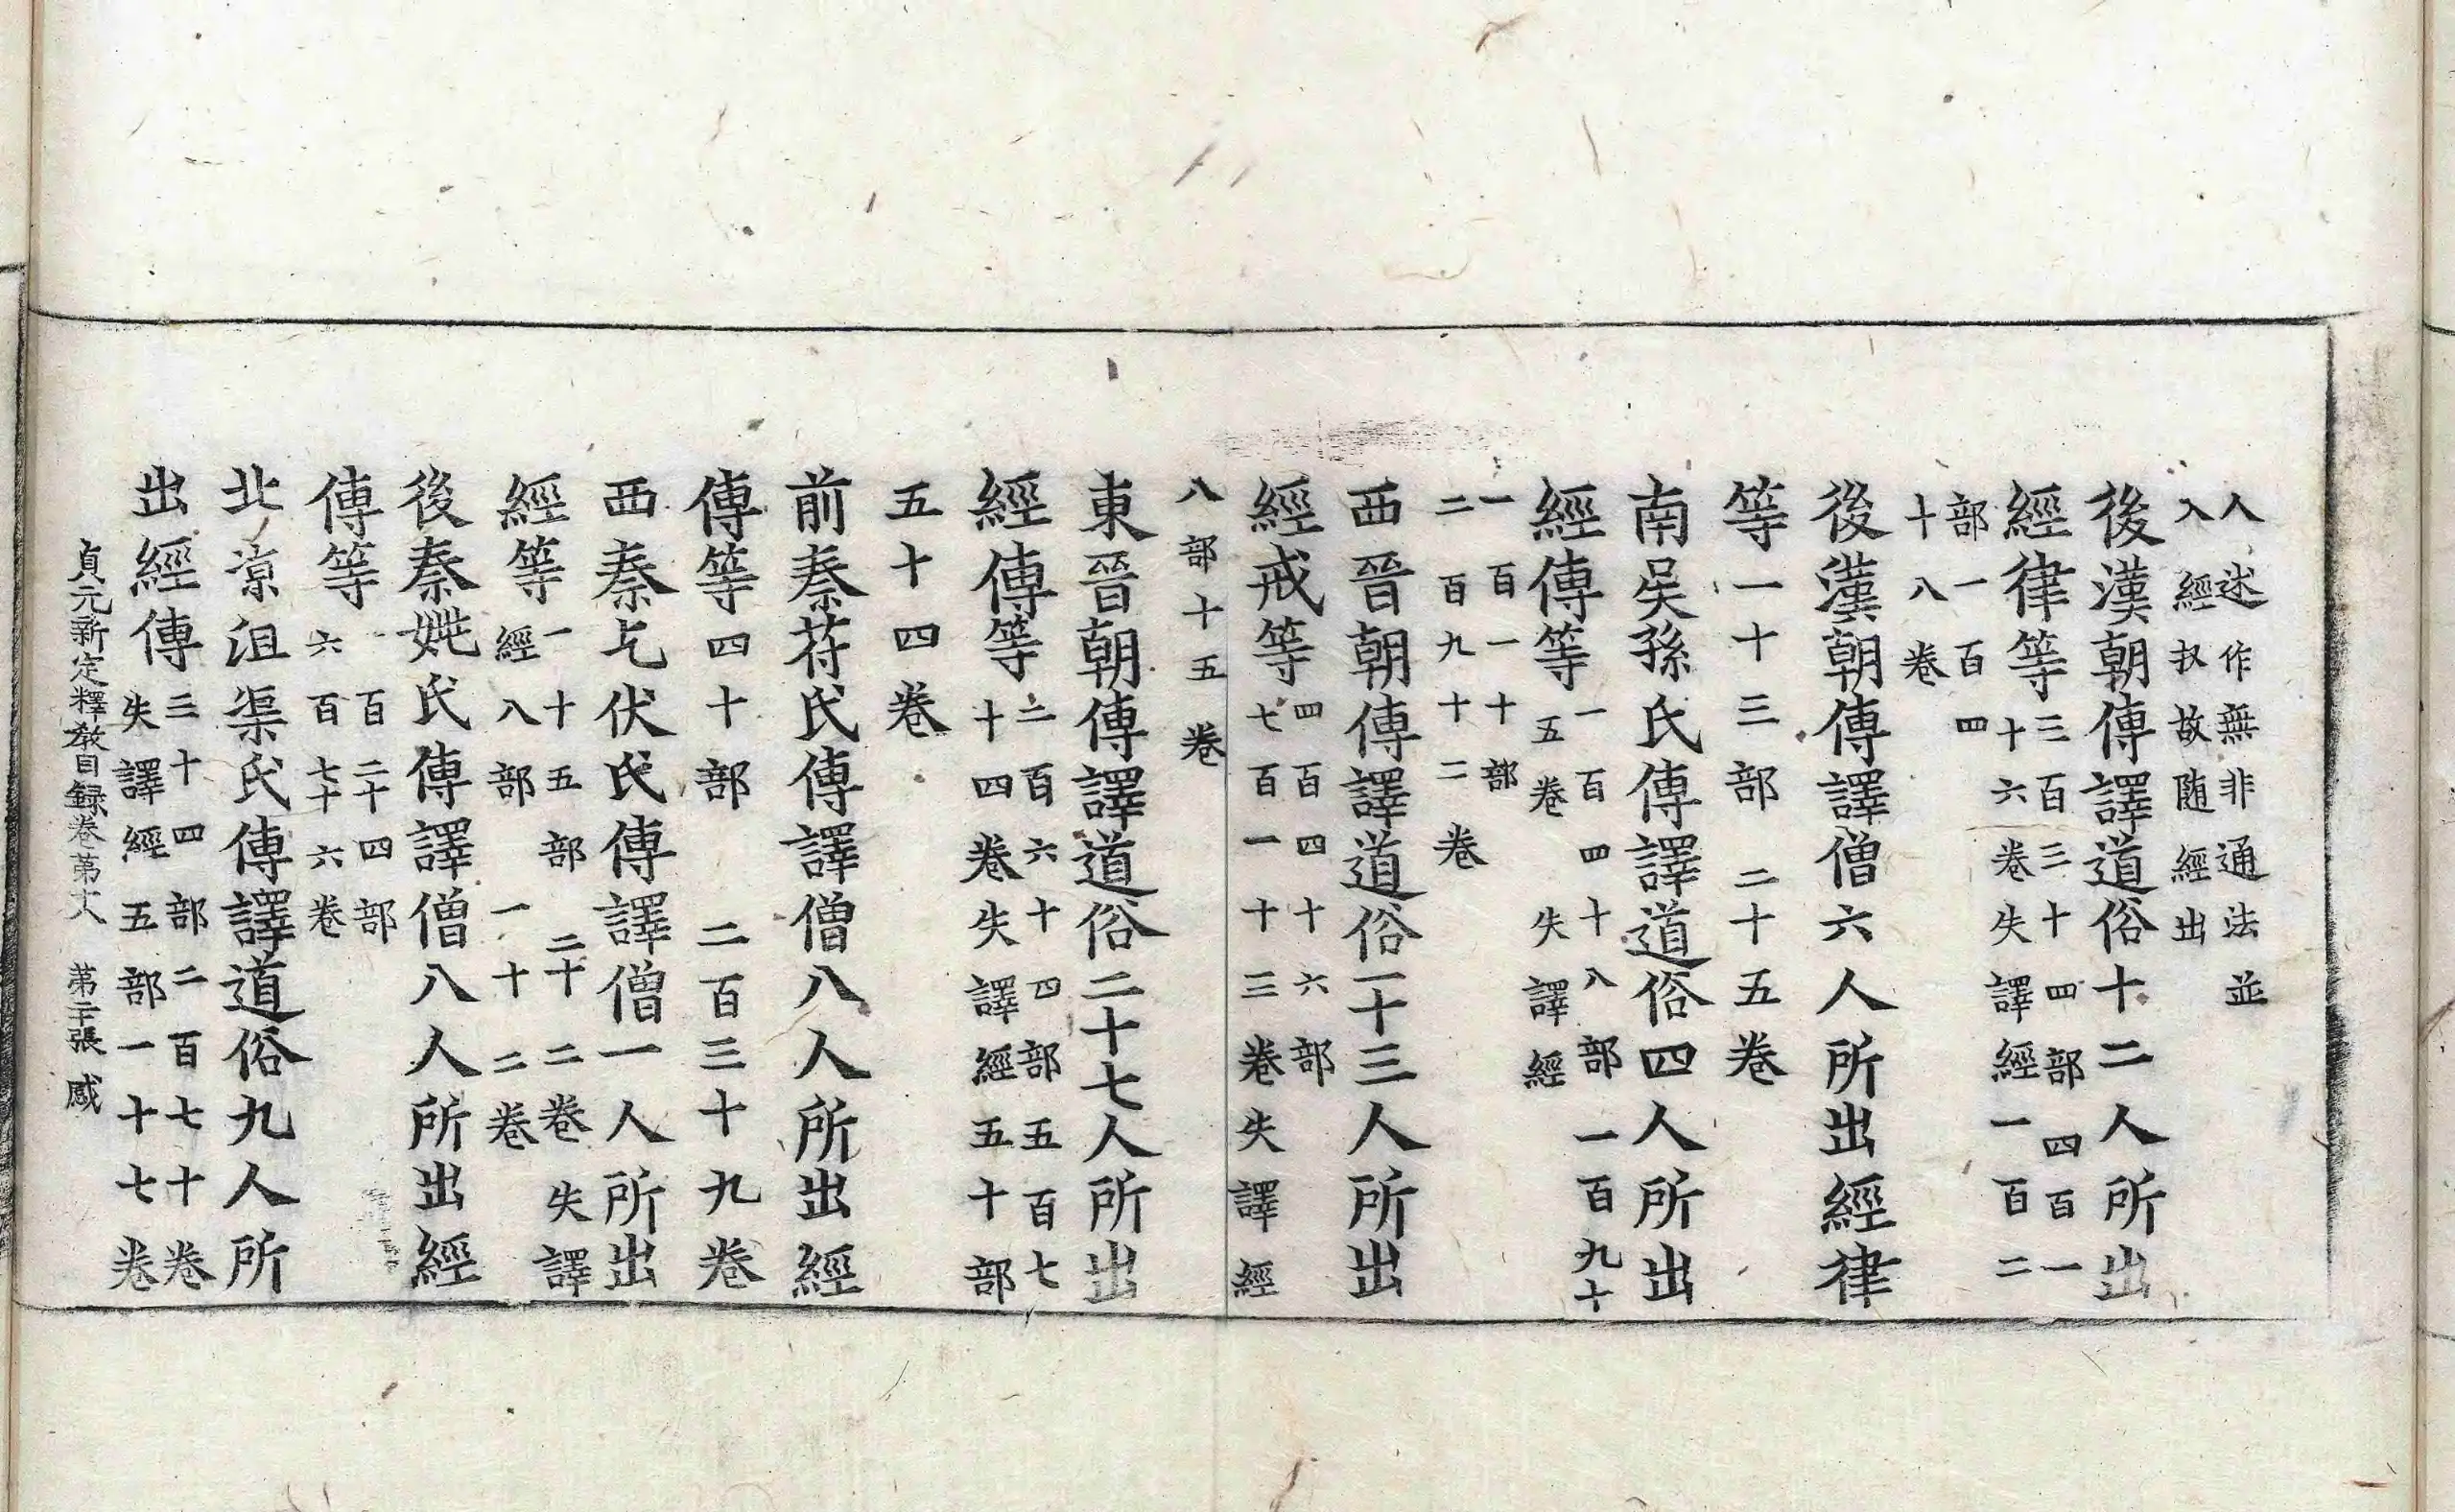 人述作無非通法並
入經収故随經出
後漢朝傳譯道俗十二人所出
經律等三百三十四部四百一
十六卷失譯經一百二
部一百四
十八卷
後漢朝傳譯僧六人所出經律
等一十三部 二十五卷
南吳孫氏傳譯道俗四人所出
經傳等一百四十八部一百九十
五卷失譯經
一百一十部
二百九十二卷
西晉朝傳譯道俗一十三人所出
經戒等四百四十六部
七百一十三卷失譯經
八部十五卷
東晉朝傳譯道俗二十七人所出
經傳等二百六十四部五百七
十四卷失譯經五十部
五十四卷
前秦苻氏傳譯僧八人所出經
傳等四十部 二百三十九卷
西秦乞伏氏傳譯僧一人所出
經等一十五部 二十二卷失譯
經八部 一十二卷
後秦姚氏傳譯僧八人所出經
傳等一百二十四部
六百七十六卷
北涼沮渠氏傳譯道俗九人所
出經傳三十四部二百七十卷
失譯經五部一十七卷
貞元新定釋教目録卷第十八 第二十張 感